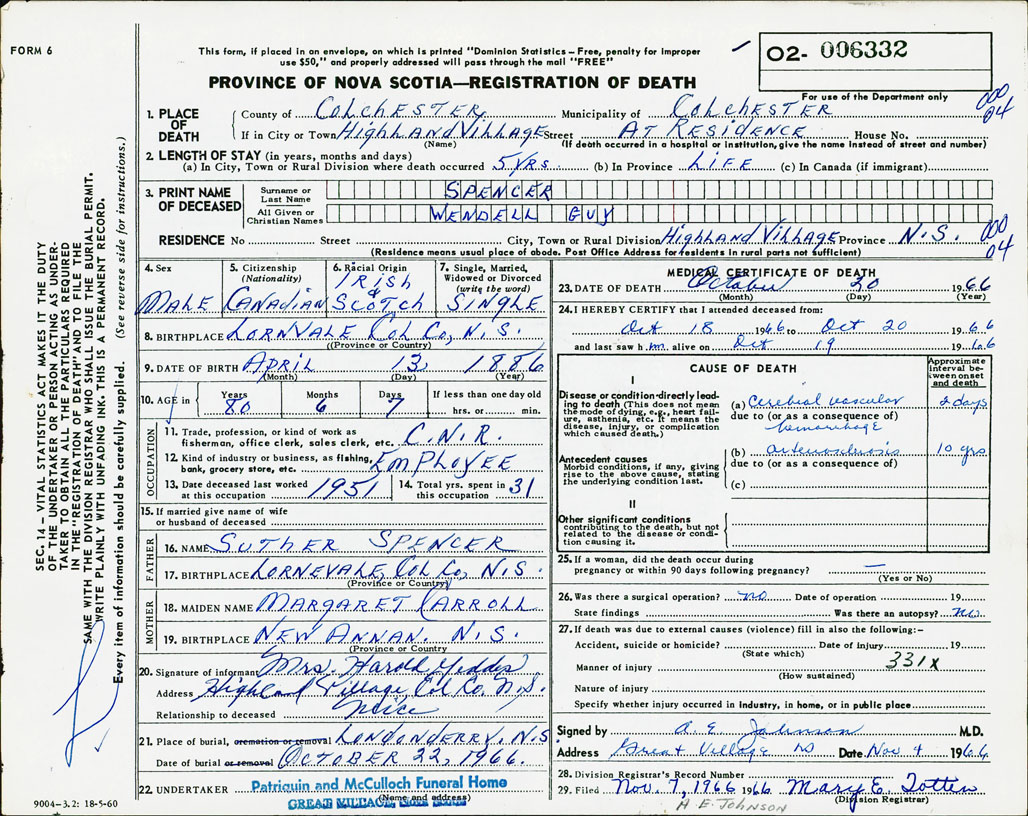 FORM 6
This form, if placed in an envelope, on which is printed "Dominion Statistics – Free, penalty for improper
use $50," and properly addressed will pass through the mail "FREE"
PROVINCE OF NOVA SCOTIA—REGISTRATION OF DEATH
02- 006332
For use of the Department only
000
04
1. PLACE OF DEATH
County of COLCHESTER Municipality of COLCHESTER
If in City or Town HIGHLAND VILLAGE Street AT RESIDENCE House No.
(Name) (If death occurred in a hospital or institution, give the name instead of street and number)
2. LENGTH OF STAY (in years, months and days)
(a) In City, Town or Rural Division where death occurred 5 YRS. (b) In Province LIFE (c) In Canada (if immigrant)
3. PRINT NAME OF DECEASED
Surname or Last Name SPENCER
All Given or Christian Names WENDELL GUY
RESIDENCE No Street City, Town or Rural Division HIGHLAND VILLAGE Province N.S.
000
04
(Residence means usual place of abode. Post Office Address for residents in rural parts not sufficient)
4. Sex
MALE
5. Citizenship
(Nationality)
CANADIAN
6. Racial Origin
IRISH
&
SCOTCH
7. Single, Married,
Widowed or Divorced
(write the word)
SINGLE
8. BIRTHPLACE LORNVALE COL CO, N.S.
(Province or Country)
9. DATE OF BIRTH APRIL 13, 1886
(Month) (Day) (Year)
10. AGE in Years Months Days If less than one day old
80 6 7 hrs. or min.
OCCUPATION
11. Trade, profession, or kind of work as
fisherman, office clerk, sales clerk, etc. C.N.R.
12. Kind of industry or business, as fishing,
bank, grocery store, etc. EMPLOYEE
13. Date deceased last worked
at this occupation 1951
14. Total yrs. spent in
this occupation 31
15. If married give name of wife
or husband of deceased
FATHER
16. NAME SUTHER SPENCER
17. BIRTHPLACE LORNEVALE, COL CO, N.S.
(Province or Country)
MOTHER
18. MAIDEN NAME MARGARET CARROLL
19. BIRTHPLACE NEW ANNAN. N.S.
(Province or Country
20. Signature of informant Mrs. Harold Geddes
Address Highland Village Col Co. N.S.
Relationship to deceased Neice
21. Place of burial, cremation or removal LONDONDERRY, N.S
Date of burial or removal OCTOBER 22, 1966.
22. UNDERTAKER Patriquin and McCulloch Funeral Home
(Name and address)
GREAT VILLAGE, NOVA SCOTIA
MEDICAL CERTIFICATE OF DEATH
23. DATE OF DEATH October 20 1966
(Month) (Day) (Year)
24. I HEREBY CERTIFY that I attended deceased from:
Oct 18 1966 to Oct 20 1966
and last saw him alive on Oct 19 1966
CAUSE OF DEATH
Approximate interval between onset and death
I
Disease or condition directly leading to death (This does not mean
the mode of dying, e.g., heart failure, asthenia, etc. It means the
disease, injury, or complication
which caused death.)
(a) Cerebral vascular 2 days
due to (or as a consequence of)
hemorrhage
Antecedent causes
Morbid conditions, if any, giving
rise to the above cause, stating
the underlying condition last.
(b) arteriosclerosis 10 yrs
due to (or as a consequence of)
(c)
II
Other significant conditions
contributing to the death, but not
related to the disease or condition causing it.
25. If a woman, did the death occur during
pregnancy or within 90 days following pregnancy? —
(Yes or No)
26. Was there a surgical operation? no Date of operation 19
State findings Was there an autopsy? no
27. If death was due to external causes (violence) fill in also the following:–
Accident, suicide or homicide? Date of injury 19
(State which)
331X
Manner of injury
(How sustained)
Nature of injury
Specify whether injury occurred in industry, in home, or in public place
Signed by A. E. Johnson M.D.
Address Great Village NS Date Nov 4 1966
28. Division Registrar's Record Number
29. Filed Nov. 7, 1966 1966 Mary E. Totten
(Division Registrar)
A E. JOHNSON
SEC. 14 – VITAL STATISTICS ACT MAKES IT THE DUTY
OF THE UNDERTAKER OR PERSON ACTING AS UNDER-
TAKER TO OBTAIN ALL THE PARTICULARS REQUIRED
IN THE "REGISTRATION OF DEATH" AND TO FILE THE
SAME WITH THE DIVISION REGISTRAR WHO SHALL ISSUE THE BURIAL PERMIT.
WRITE PLAINLY WITH UNFADING INK. THIS IS A PERMANENT RECORD.
Every item of information should be carefully supplied. (See reverse side for instructions.)
9004–3.2: 18-5-60